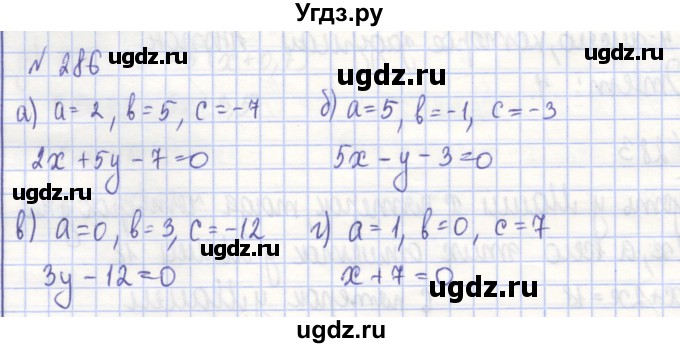 Угдз.ру
№ 286
ugdz.ru
ugdz.ru
а) a = 2, b = 5, c = -7
б) a = 5, b = -1, c = -3
2x + 5y - 7 = 0
5x - y - 3 = 0
ugdz.ru
ugdz.ru
в) a = 0, b = 3, c = -12
г) a = 1, b = 0, c = 7
ugdz.ru
3y - 12 = 0
x + 7 = 0
ugdz.ru
ugdz.ru
ugdz.ru